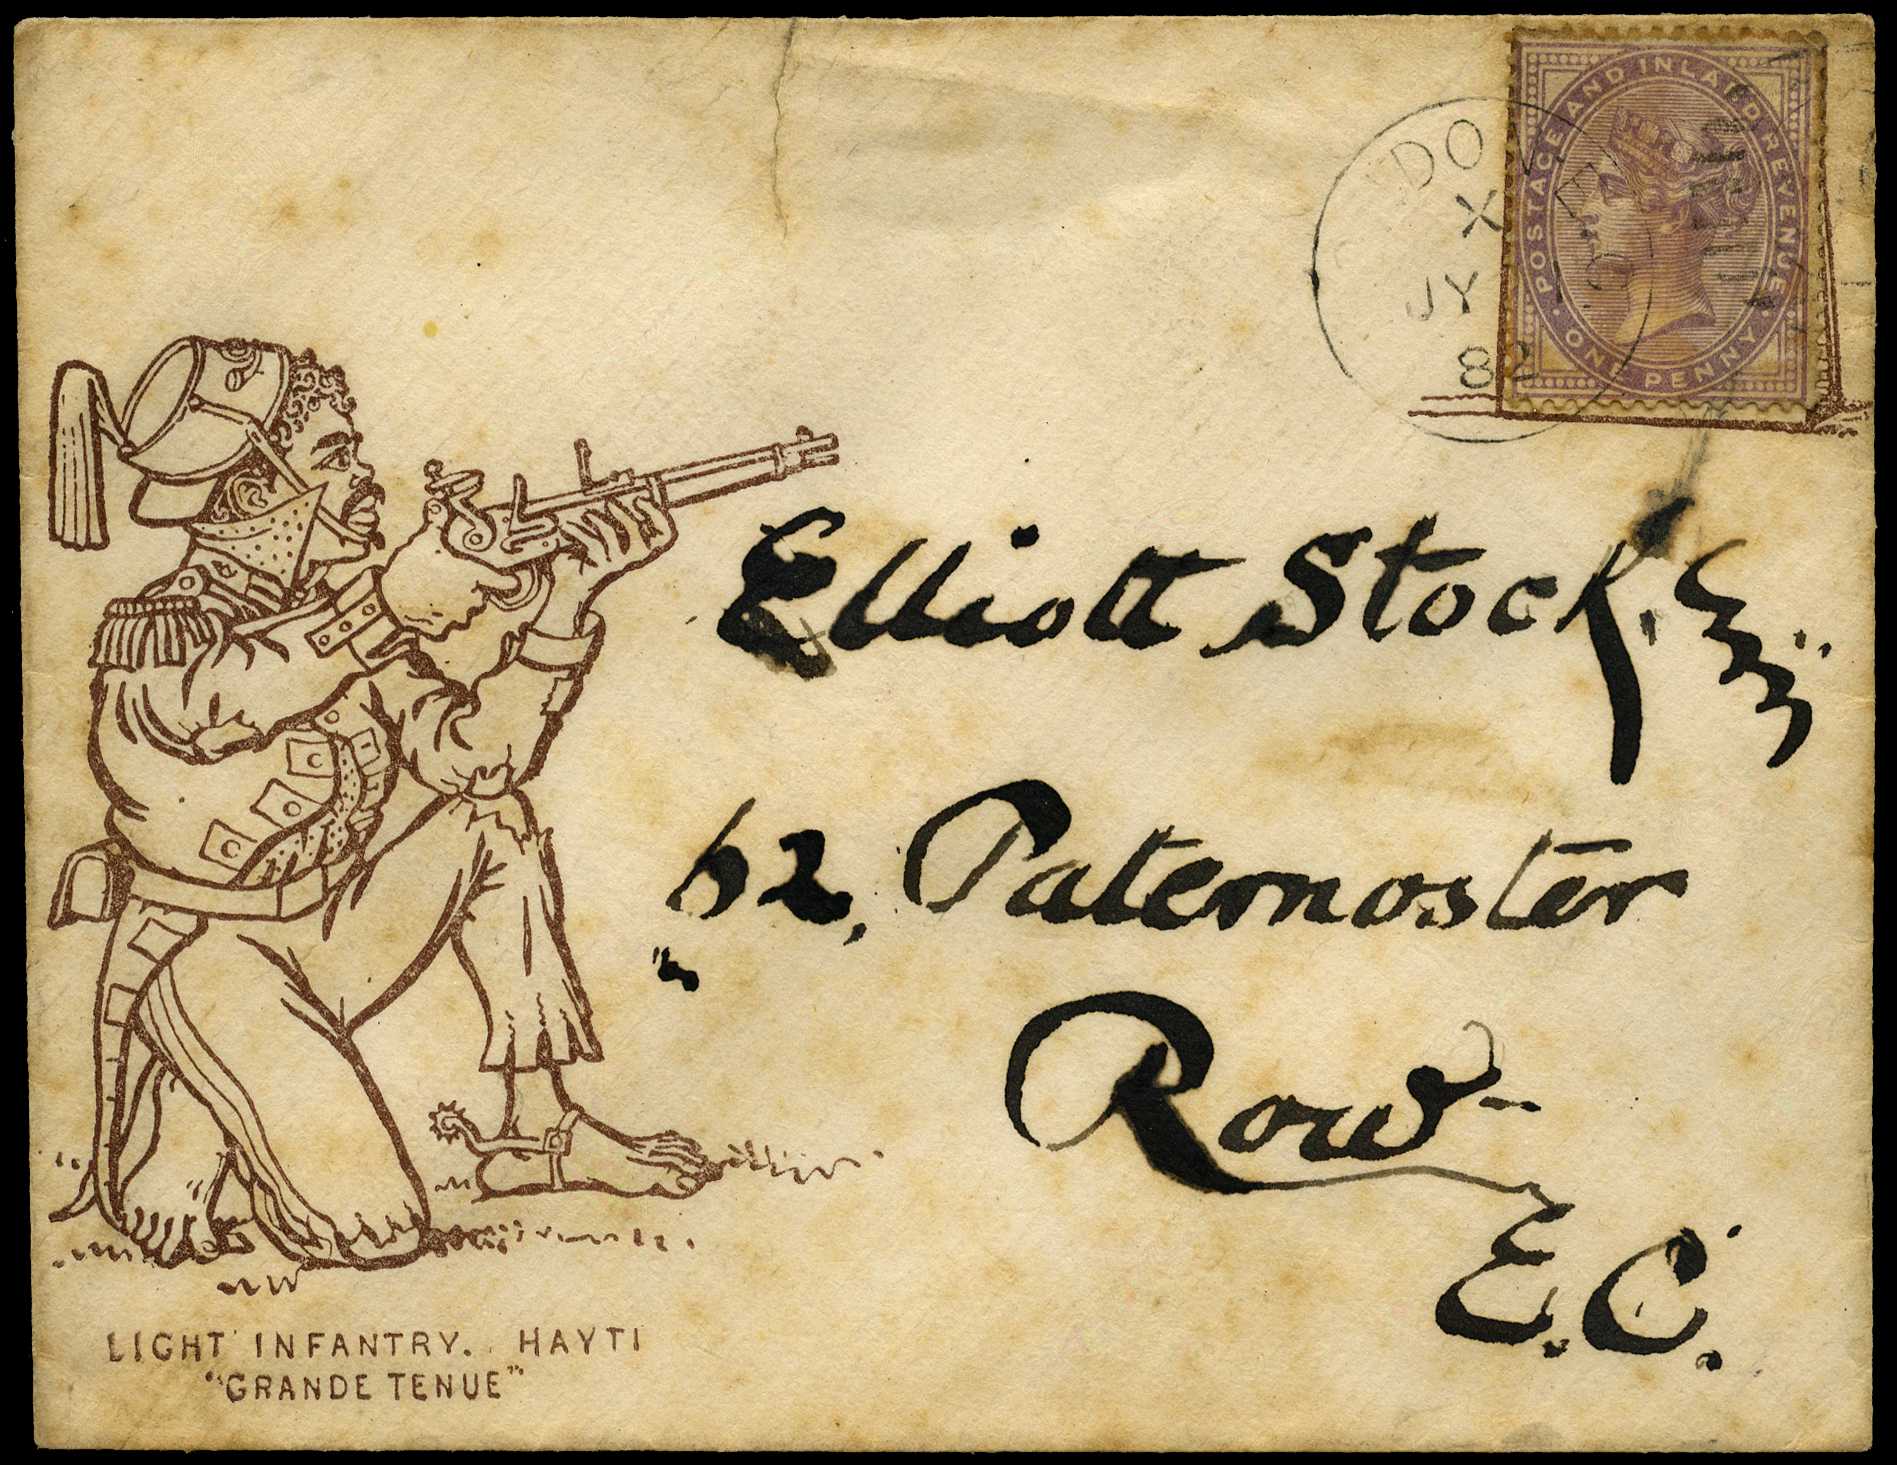 POSTAGE AND INLAND REVENUE
ONE PENNY
X
JY
82
Elliott Stock.
62, Paternoster
Row
E.C.
LIGHT INFANTRY. HAYTI
"GRANDE TENUE"